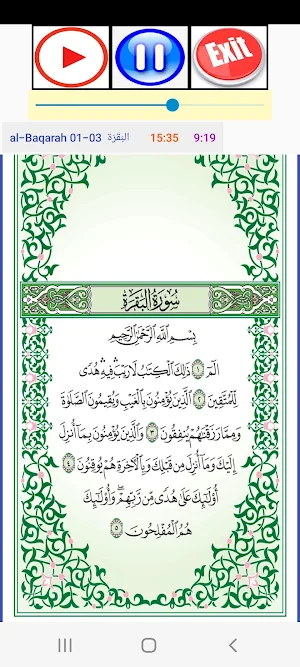 Exit
al-Baqarah 01-03 البقرة 15:35 9:19
سُورَةُ البَقَرَةِ
بِسْمِ اللَّهِ الرَّحْمَٰنِ الرَّحِيمِ
الٓمٓ ١ ذَٰلِكَ الْكِتَابُ لَا رَيْبَ ۛ فِيهِ ۛ هُدًى
لِّلْمُتَّقِينَ ٢ الَّذِينَ يُؤْمِنُونَ بِالْغَيْبِ وَيُقِيمُونَ الصَّلَاةَ
وَمِمَّا رَزَقْنَاهُمْ يُنفِقُونَ ٣ وَالَّذِينَ يُؤْمِنُونَ بِمَا أُنزِلَ
إِلَيْكَ وَمَا أُنزِلَ مِن قَبْلِكَ وَبِالْآخِرَةِ هُمْ يُوقِنُونَ ٤
أُولَٰئِكَ عَلَىٰ هُدًى مِّن رَّبِّهِمْ ۖ وَأُولَٰئِكَ
هُمُ الْمُفْلِحُونَ ٥